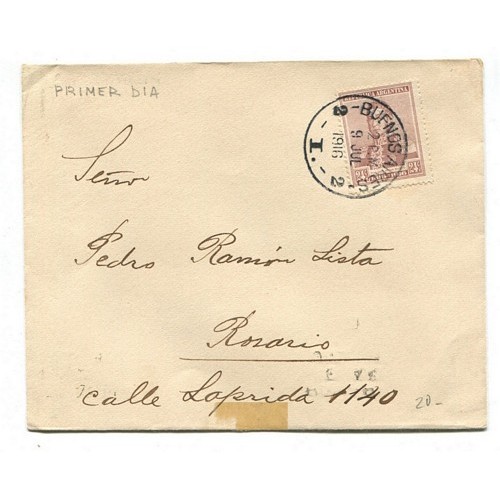 PRIMER DÍA
REPUBLICA ARGENTINA
BUENOS AIRES
2
9 JUL
1916
I.
2
2c 2c
Señor
Pedro Ramón Lista
Rosario
calle Laprida 1140
20-